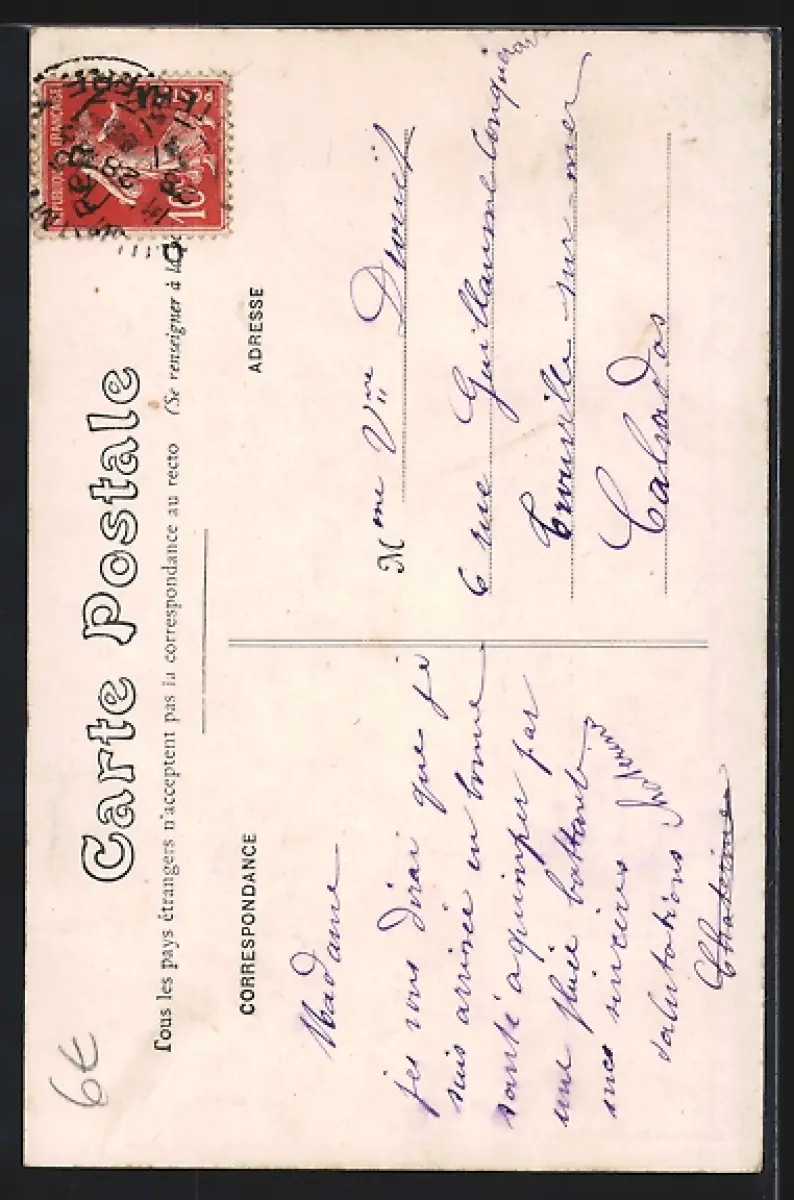 Carte Postale
Tous les pays étrangers n'acceptent pas la correspondance au recto (Se renseigner à la
REPUBLIQUE FRANÇAISE
10
28
CORRESPONDANCE
Madame
je vous dirai que je
suis arrivée en bonne
santé a quimper par
une pluie battante
mes sincères
salutations
ADRESSE
Mme Vve
6 rue Guillaume Conquérant
Trouville-sur-mer
Calvados
6€